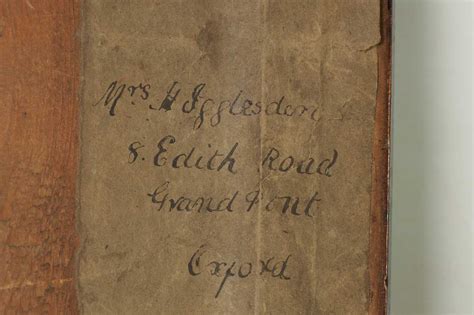 Mrs H Igglesden
8. Edith Road
Grand Pont
Oxford